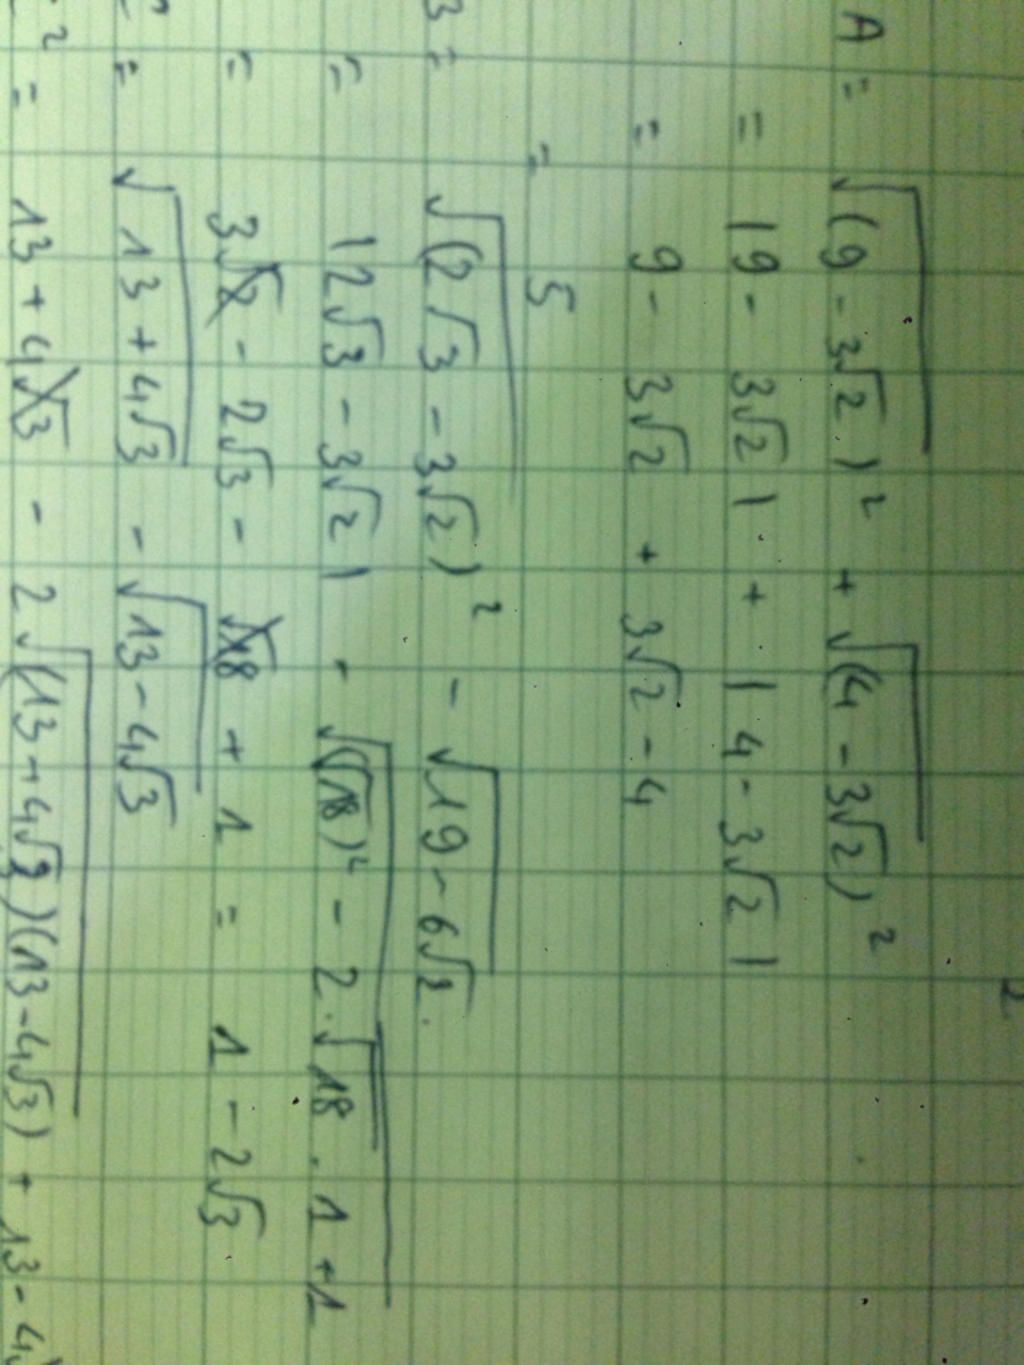 A = √(9 - 3√2)² + √(4 - 3√2)²
= |9 - 3√2| + |4 - 3√2|
= 9 - 3√2 + 3√2 - 4
= 5
B = √(2√3 - 3√2)² - √19 - 6√2.
= |2√3 - 3√2| - √(√18)² - 2.√18 . 1 + 1
= 3√2 - 2√3 - √18 + 1 = 1 - 2√3
= √13 + 4√3 - √13 - 4√3
² = 13 + 4√3 - 2√(13 + 4√3)(13 - 4√3) + 13 - 4